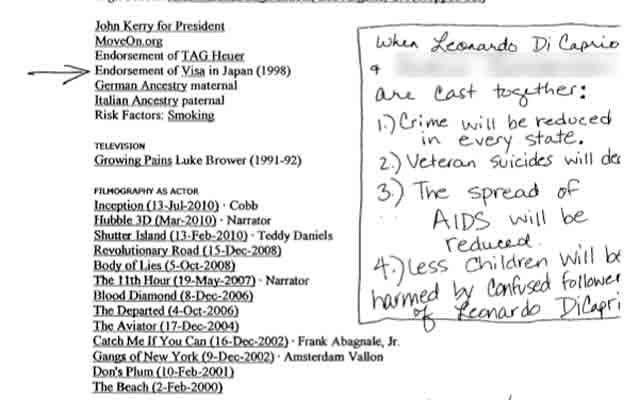 John Kerry for President
MoveOn.org
Endorsement of TAG Heuer
Endorsement of Visa in Japan (1998)
German Ancestry maternal
Italian Ancestry paternal
Risk Factors: Smoking
TELEVISION
Growing Pains Luke Brower (1991-92)
FILMOGRAPHY AS ACTOR
Inception (13-Jul-2010) · Cobb
Hubble 3D (Mar-2010) · Narrator
Shutter Island (13-Feb-2010) · Teddy Daniels
Revolutionary Road (15-Dec-2008)
Body of Lies (5-Oct-2008)
The 11th Hour (19-May-2007) · Narrator
Blood Diamond (8-Dec-2006)
The Departed (4-Oct-2006)
The Aviator (17-Dec-2004)
Catch Me If You Can (16-Dec-2002) · Frank Abagnale, Jr.
Gangs of New York (9-Dec-2002) · Amsterdam Vallon
Don's Plum (10-Feb-2001)
The Beach (2-Feb-2000)
When Leonardo DiCaprio
&
are cast together:
1.) Crime will be reduced
in every state.
2.) Veteran suicides will de
3.) The spread of
AIDS will be
reduced.
4.) Less Children will be
harmed by confused follower
of Leonardo DiCapri